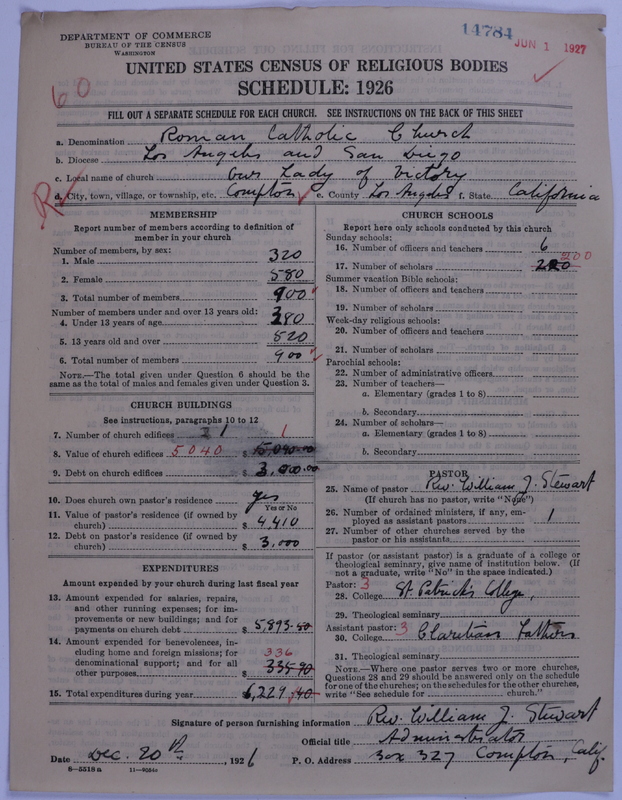 14784
JUN 1 1927
DEPARTMENT OF COMMERCE
BUREAU OF THE CENSUS
WASHINGTON
UNITED STATES CENSUS OF RELIGIOUS BODIES
SCHEDULE: 1926
60
FILL OUT A SEPARATE SCHEDULE FOR EACH CHURCH. SEE INSTRUCTIONS ON THE BACK OF THIS SHEET
a. Denomination Roman Catholic Church
b. Diocese Los Angeles and San Diego
c. Local name of church Our Lady of Victory
R
d. City, town, village, or township, etc. Compton e. County Los Angeles f. State California
MEMBERSHIP
Report number of members according to definition of
member in your church
Number of members, by sex:
1. Male 320
2. Female 580
3. Total number of members 900
Number of members under and over 13 years old:
4. Under 13 years of age 380
5. 13 years old and over 520
6. Total number of members 900
NOTE.—The total given under Question 6 should be the
same as the total of males and females given under Question 3.
CHURCH BUILDINGS
See instructions, paragraphs 10 to 12
7. Number of church edifices 1 1
8. Value of church edifices 5040 $ 15,040.00
9. Debt on church edifices $ 3,000.00
10. Does church own pastor's residence yes
Yes or No
11. Value of pastor's residence (if owned by
church) $ 4,410
12. Debt on pastor's residence (if owned by
church) $ 3,000
EXPENDITURES
Amount expended by your church during last fiscal year
13. Amount expended for salaries, repairs,
and other running expenses; for im-
provements or new buildings; and for
payments on church debt $ 5,893.50
14. Amount expended for benevolences, in-
cluding home and foreign missions; for
denominational support; and for all 336
other purposes $ 335.90
15. Total expenditures during year 6,229.40
CHURCH SCHOOLS
Report here only schools conducted by this church
Sunday schools:
16. Number of officers and teachers 6
200
17. Number of scholars
Summer vacation Bible schools:
18. Number of officers and teachers
19. Number of scholars
Week-day religious schools:
20. Number of officers and teachers
21. Number of scholars
Parochial schools:
22. Number of administrative officers
23. Number of teachers—
a. Elementary (grades 1 to 8)
b. Secondary
24. Number of scholars—
a. Elementary (grades 1 to 8)
b. Secondary
PASTOR
25. Name of pastor Rev. William J. Stewart
(If church has no pastor, write "None")
26. Number of ordained ministers, if any, em-
ployed as assistant pastors 1
27. Number of other churches served by the
pastor or his assistants
If pastor (or assistant pastor) is a graduate of a college or
theological seminary, give name of institution below. (If
not a graduate, write "No" in the space indicated.)
Pastor: 3
28. College St Patrick's College,
29. Theological seminary
Assistant pastor: 3
30. College Claretian Fathers
31. Theological seminary
NOTE.—Where one pastor serves two or more churches,
Questions 28 and 29 should be answered only on the schedule
for one of the churches; on the schedules for the other churches,
write "See schedule for church."
Signature of person furnishing information Rev. William J. Stewart
Official title Administrator
Date Dec. 20th, 1926 P. O. Address Box 327 Compton, Calif.
8—5518a